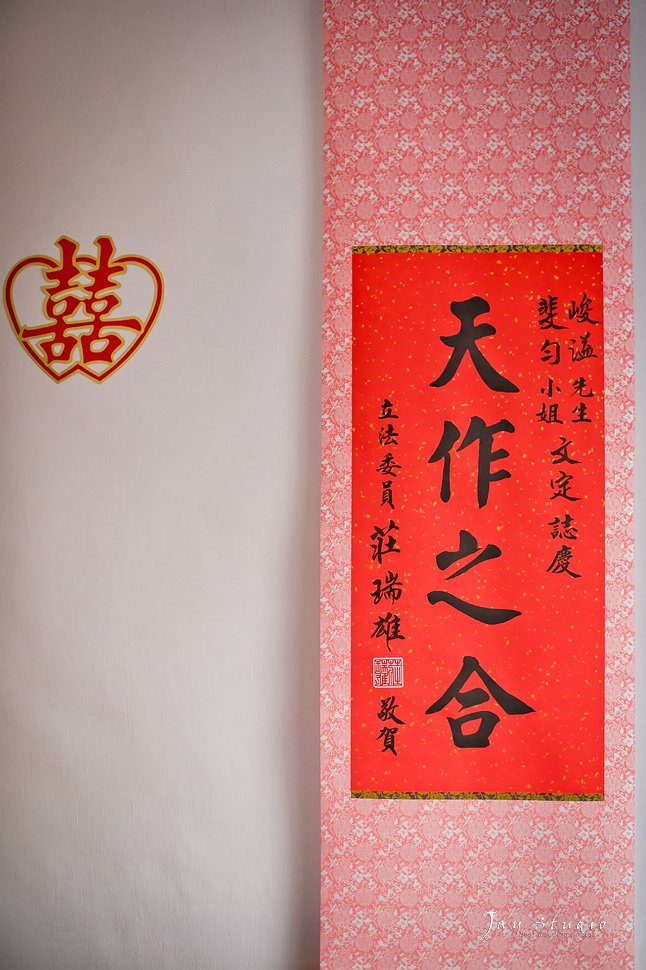 囍
峻謚 先生
斐勻 小姐
文定 誌慶
天作之合
立法委員 莊瑞雄
敬賀
Jay Studio